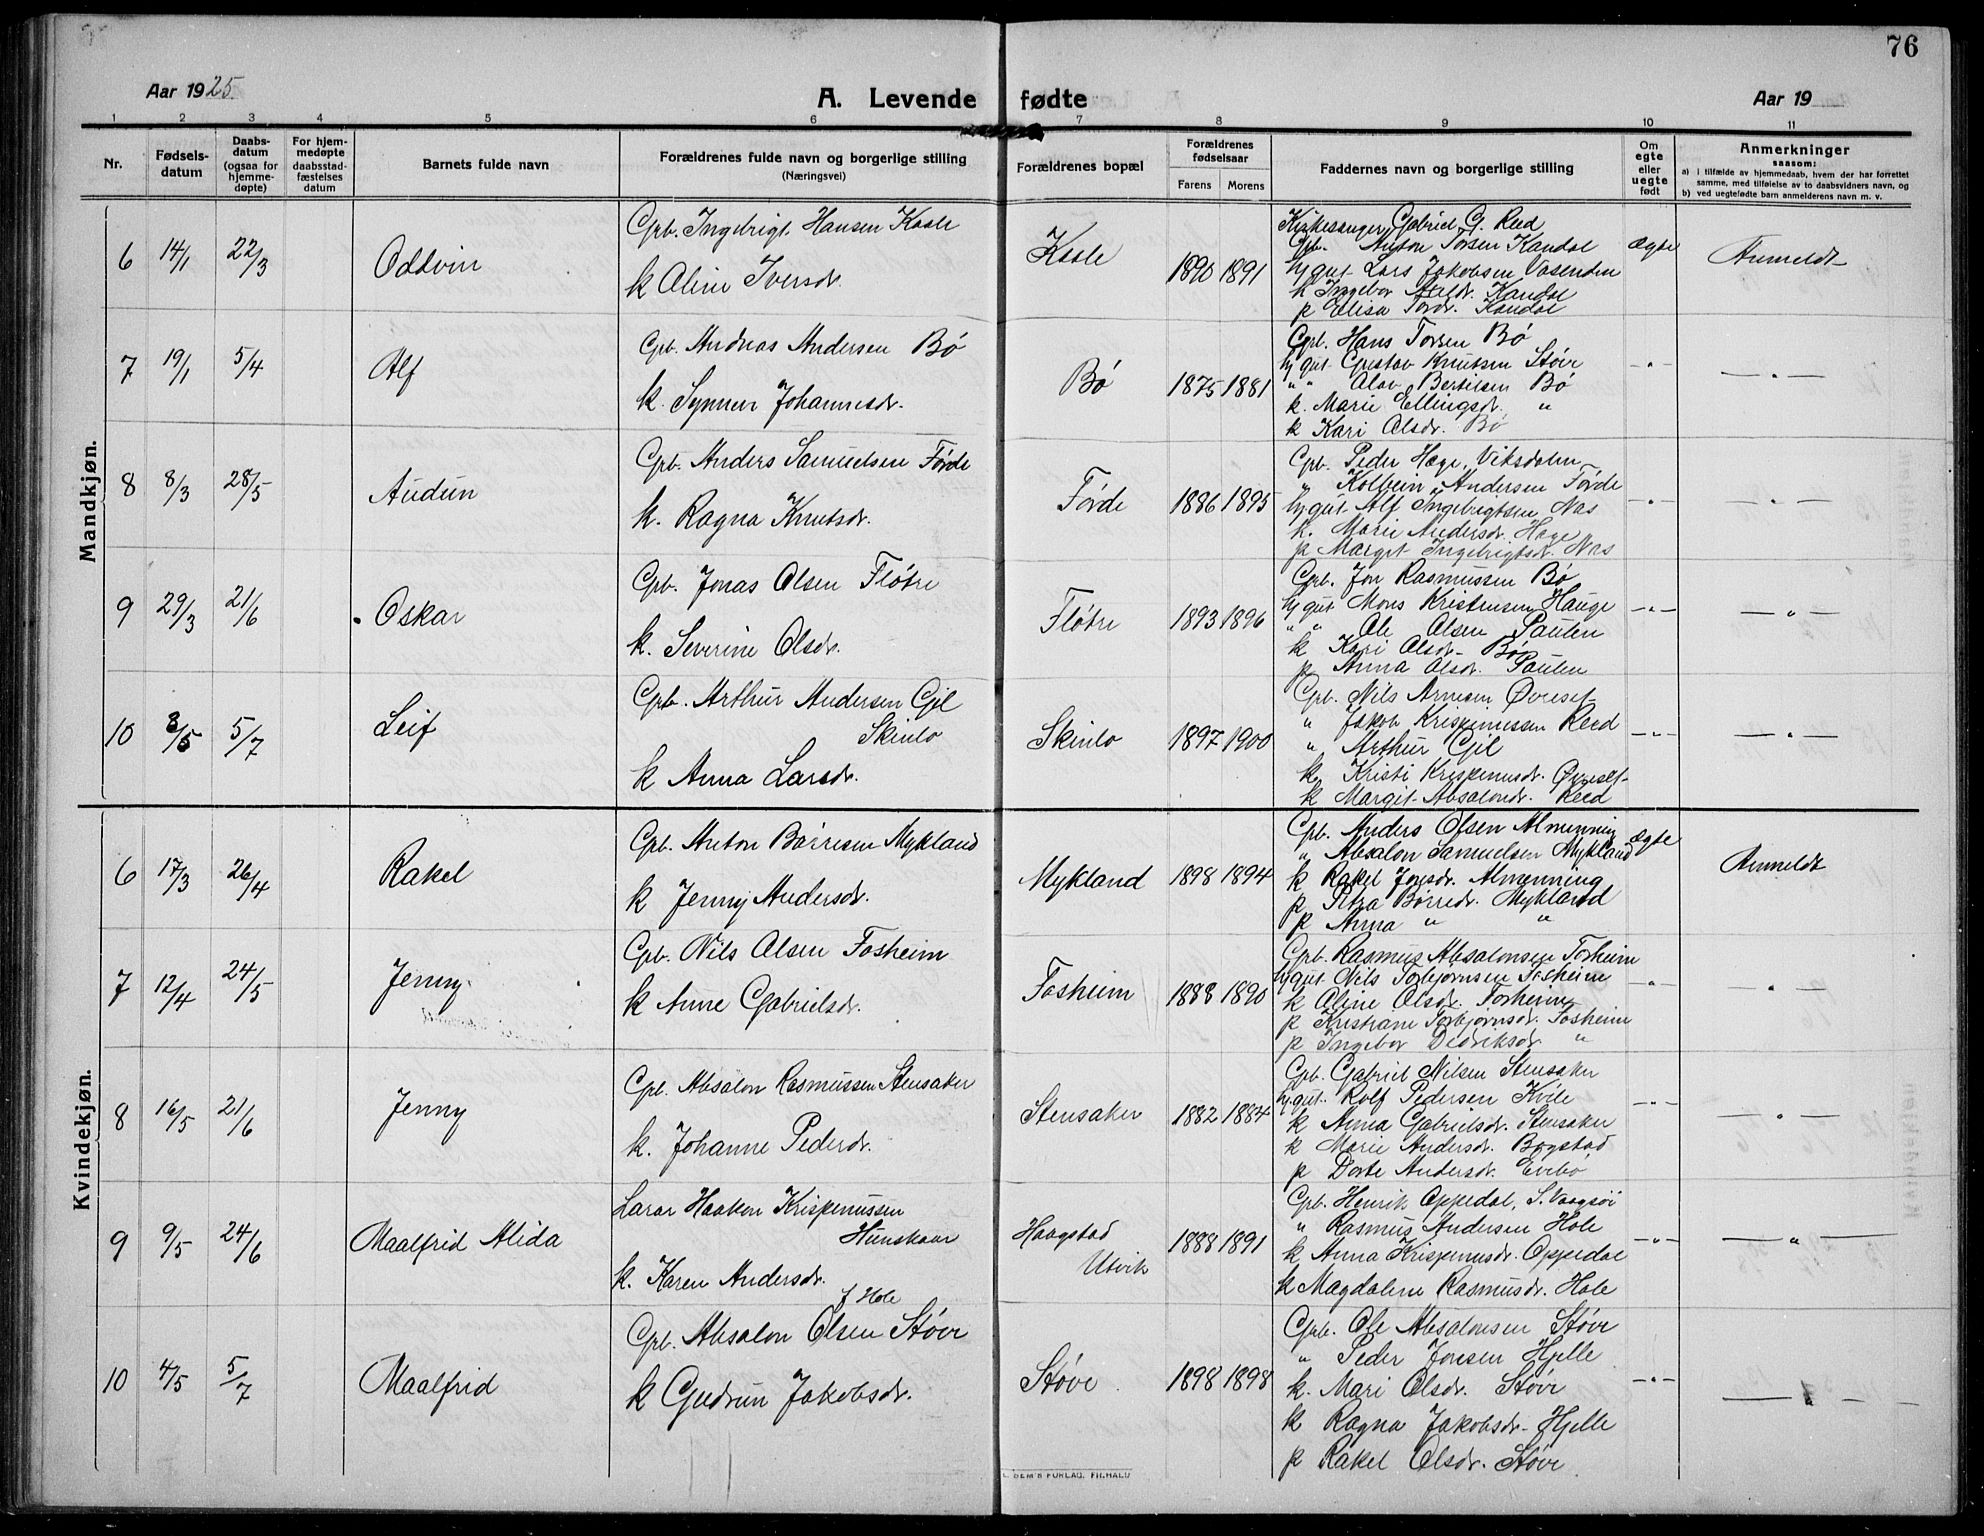 76
Aar 1925
A. Levende fødte
Aar 19
1 2 3 4 5 6 7 8 9 10 11
Nr.
Fødsels-
datum
Daabs-
datum
(ogsaa for
hjemme-
døpte)
For hjem-
medøpte
daabsstad-
fæstelses
datum
Barnets fulde navn
Forældrenes fulde navn og borgerlige stilling
(Næringsvei)
Forældrenes bopæl
Forældrenes
fødselsaar
Farens Morens
Faddernes navn og borgerlige stilling
Om
egte
eller
uegte
født
Anmerkninger
saasom:
a) i tilfælde av hjemmedaab, hvem der har forrettet
samme, med tilføielse av to daabsvidners navn, og
b) ved uegtefødte barn anmelderens navn m. v.
Mandkjøn.
6 14/1 22/3 Oddvin
Grb. Ingebrigt Hansen Kaale
k Aline Iversdr.
Kaale 1890 1891
Kirkesanger Gabriel G. Reed
Grb. Anton Torsen Kandal
Ugut Lars Jakobsen Vasenden
k Ingebor Axeldr. Kandal
p Elisa Tordr. Kandal
Ægte Anmeldt
7 19/1 5/4 Alf
Grb. Andreas Andersen Bø
k. Synner Johannesdr.
Bø 1875 1881
Grb. Hans Torsen Bø
Ugut Gustav Knutsen Støve
" " Olav Bertilsen Bø
k. Marie Ellingsdr. "
k Kari Olsdr. Bø
-"- — " —
8 8/3 28/5 Audun
Grb. Anders Samuelsen Førde
k. Ragna Knutsdr.
Førde 1886 1895
Grb. Peder Hage, Viksdalen
" Kolbein Andersen Førde
Ugut Alf Ingebrigtsen Nas
k. Marie Andersdr. Hage
p Margit Ingebrigtsdr. Nas
-"- — " —
9 29/3 21/6 Oskar
Grb. Jonas Olsen Fløtre
k. Severine Olsdr.
Fløtre 1893 1896
Grb. Jon Rasmussen Bø
Ugut Mons Kristensen Hauge
" " Ole Olsen Paulen
k Kari Olsdr. Bø
p Anna Olsdr. Paulen
-"- — " —
10 8/5 5/7 Leif
Grb. Arthur Andersen Gjl
Skinlo
k Anna Larsdr.
Skinlo 1897 1900
Grb. Nils Arnesen Øvreset
" Jakob Krispinussen Reed
" Arthur Gjl
k. Kristi Krispenusdr. Øvreset
k Margit Absalondr. Reed
-"- — " —
Kvindekjøn.
6 17/3 26/4 Rakel
Grb. Anton Børresen Mykland
k Jenny Andersdr.
Mykland 1898 1894
Grb. Anders Olsen Almenning
" Absalon Samuelsen Mykland
k Rakel Jonsdr. Almenning
p Petra Børredr. Mykland
p Anna " "
Ægte Anmeldt
7 12/4 24/5 Jenny
Grb. Nils Olsen Fosheim
k Anne Gabrielsdr.
Fosheim 1888 1890
Grb. Rasmus Absalonsen Fosheim
Ugut Nils Torbjørnsen Fosheim
k Aline Olsdr. Fosheim
p Kristiane Torbjørnsdr. Fosheim
p Ingebor Didriksdr. "
-"- — " —
8 16/5 21/6 Jenny
Grb. Absalon Rasmussen Stensaker
k. Johanne Pedersdr.
Stensaker 1882 1884
Grb. Gabriel Nilsen Stensaker
Ugut Rolf Pedersen Kvile
k Anna Gabrielsdr. Stensaker
k Marie Andersdr. Bogstad
p Dorte Andersdr. Evebø
-"- — " —
9 9/5 24/6 Maalfrid Alida
Lærer Haakon Krispenussen
Hunskaar
k. Karen Andersdr.
f Hole
Haagstad
Utvik
1888 1891
Grb. Henrik Oppedal, S. Vaagsøi
" Rasmus Andersen Hole
k Anna Krispenusdr. Oppedal
k Magdalene Rasmusdr. Hole
-"- — " —
10 4/5 5/7 Maalfrid
Grb. Absalon Olsen Støve
k Gudrun Jakobsdr.
Støve 1898 1898
Grb. Ole Absalonsen Støve
" Peder Jonsen Hjelle
k. Mari Olsdr. Støve
k Ragna Jakobsdr. Hjelle
p Rakel Olsdr. Støve
-"- — " —
SEM'S FORLAG, FR.HALD